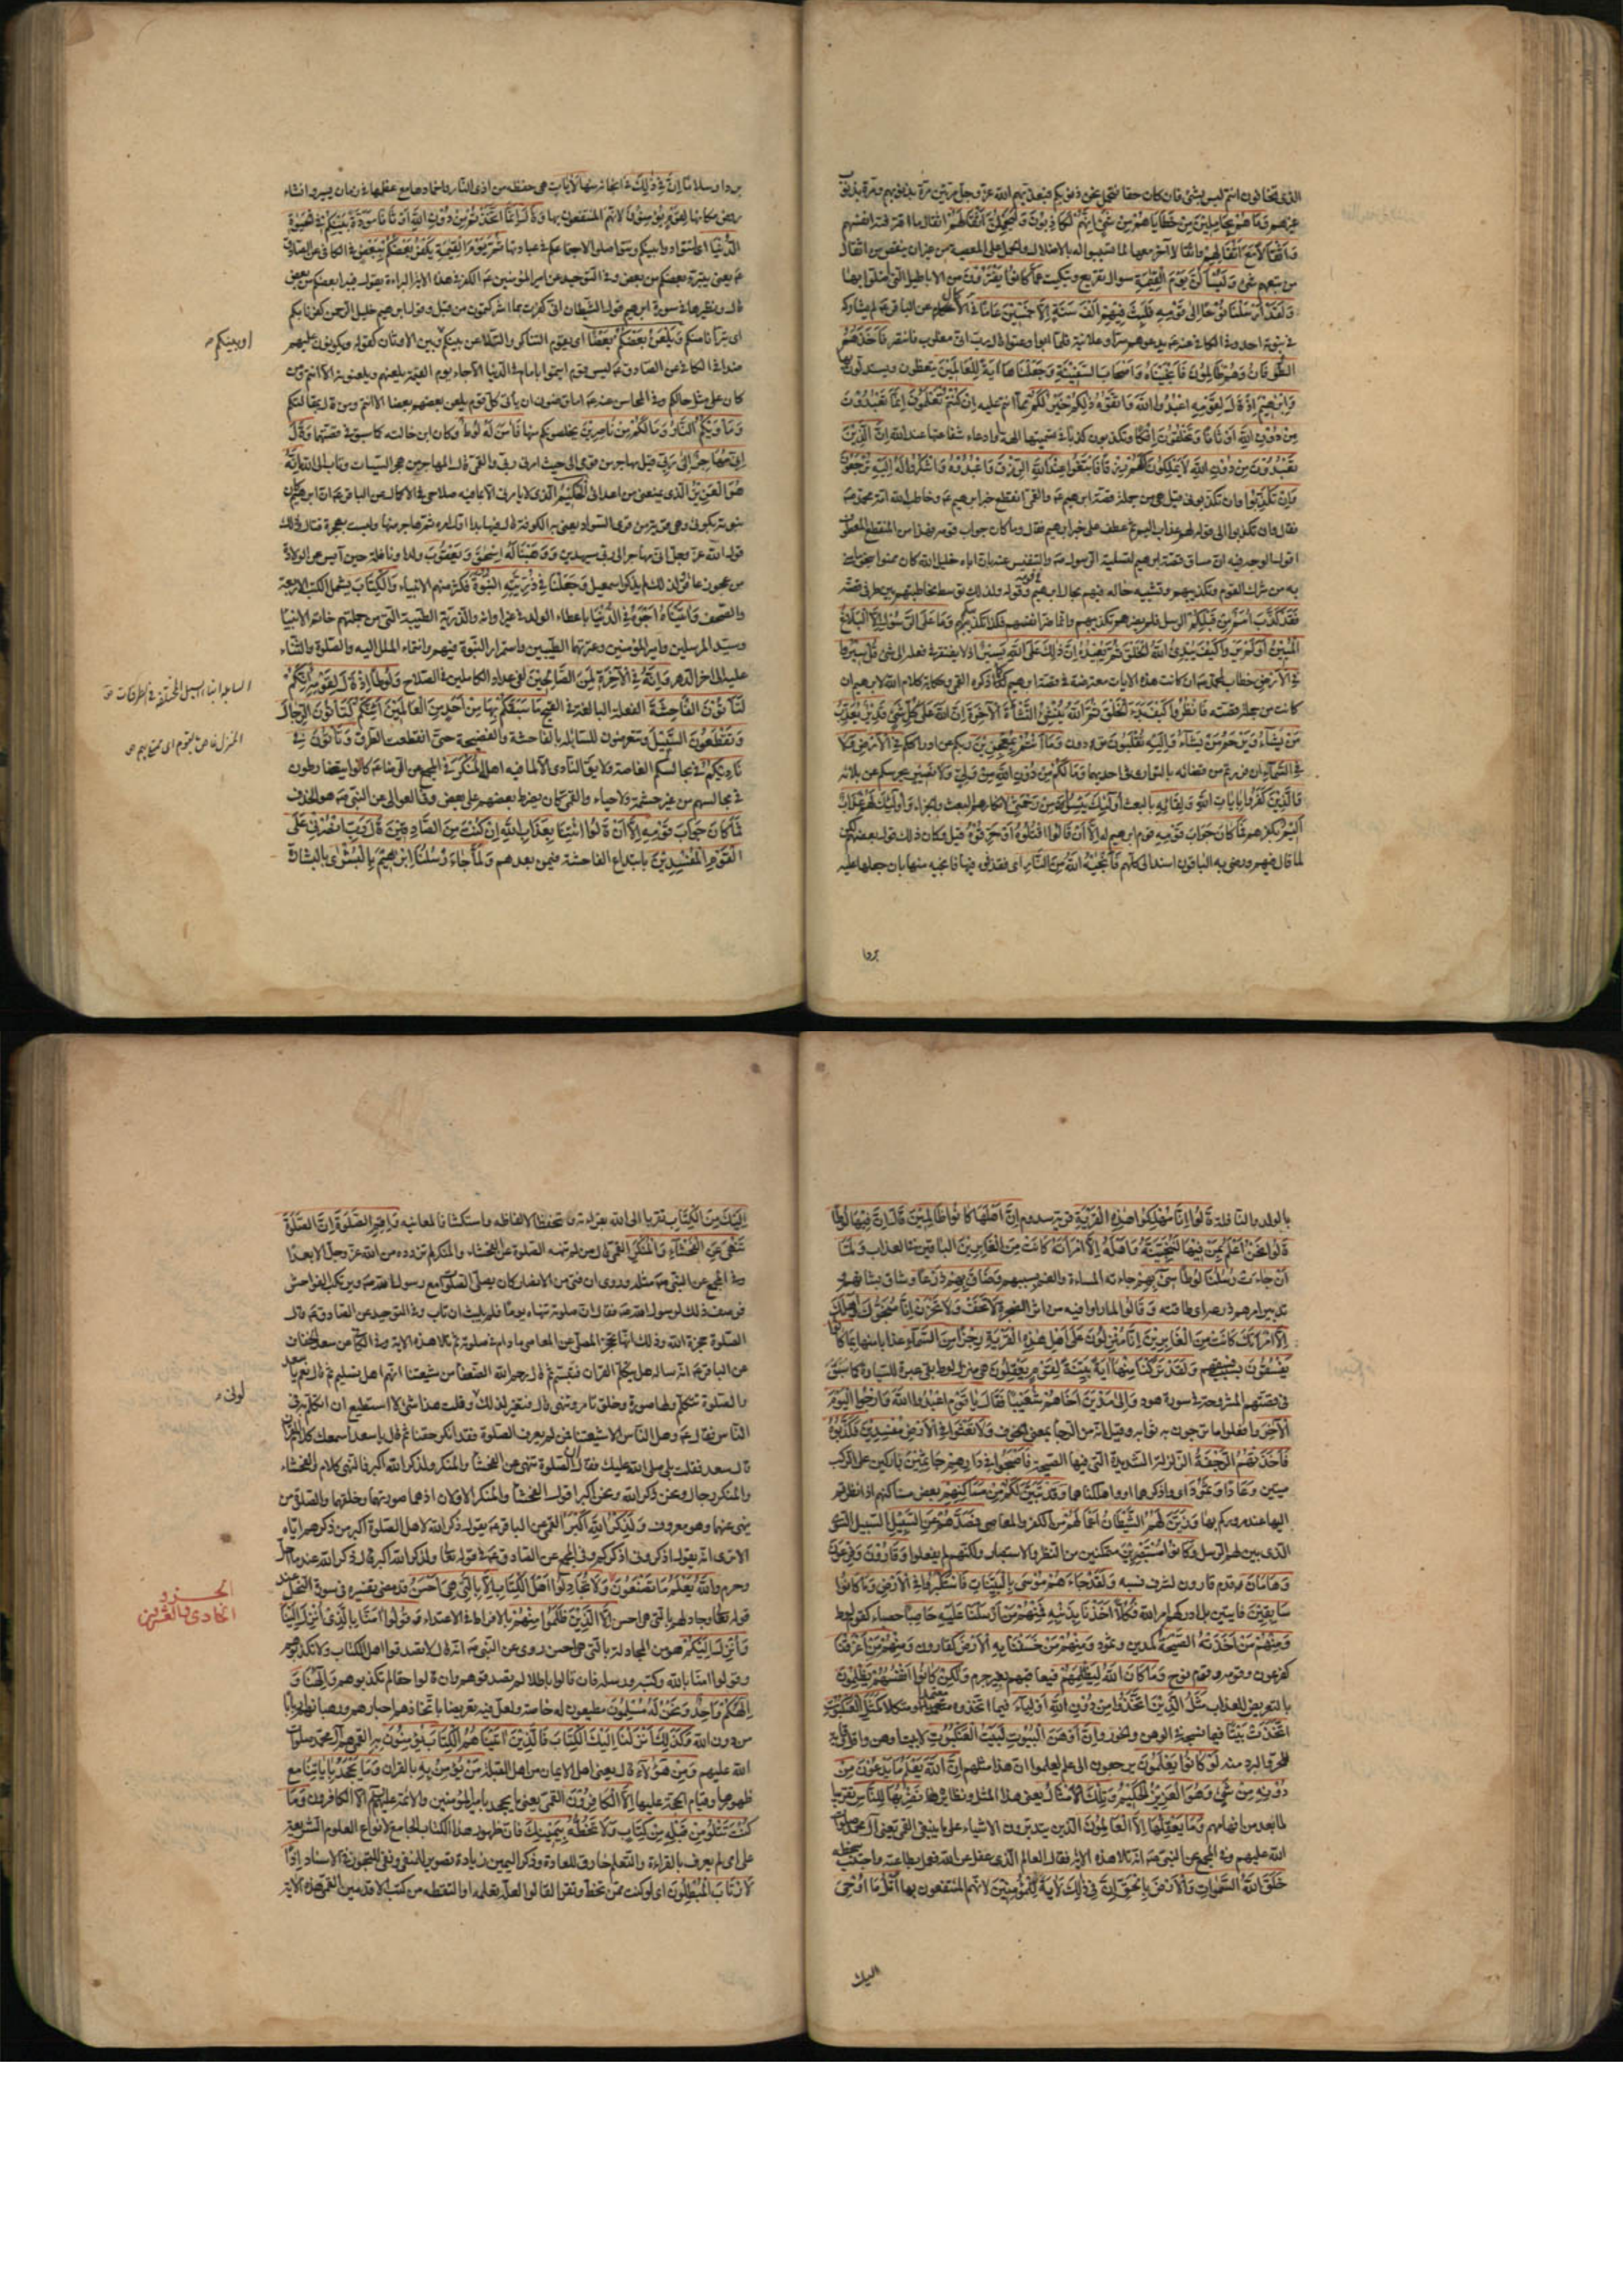 الذى تخافون انتم ليس بشئ فان كان حقا نتحمل نحن ذنوبكم فيعذبهم الله عز وجل مرتين مرة بذنوبهم ومرة بذنوب
غيرهم وَمَا هُمْ بِحَامِلِينَ مِنْ خَطَايَاهُمْ مِنْ شَىْءٍ اِنَّهُمْ لَكَاذِبُونَ وَلَيَحْمِلُنَّ اَثْقَالَهُمْ اثقال ما اقترفته انفسهم
وَاَثْقَالًا مَعَ اَثْقَالِهِمْ واثقالا آخر معها لما تسببوا له بالاضلال والحمل على المعصية من غير ان ينقص من اثقال
من تبعهم شئ وَلَيُسْئَلُنَّ يَوْمَ الْقِيٰمَةِ سؤال تقريع وتبكيت عَمَّا كَانُوا يَفْتَرُونَ من الاباطيل التى اضلوا بها
وَلَقَدْ اَرْسَلْنَا نُوحًا اِلٰى قَوْمِهِ فَلَبِثَ فِيهِمْ اَلْفَ سَنَةٍ اِلَّا خَمْسِينَ عَامًا فى الاكمال عن الباقر لم يشاركه
فى نبوته احد وفى الكافى عنه يدعوهم سرا وعلانية فلما ابوا وعتوا قال رب انى مغلوب فانتصر فَاَخَذَهُمُ
الطُّوفَانُ وَهُمْ ظَالِمُونَ فَاَنْجَيْنَاهُ وَاَصْحَابَ السَّفِينَةِ وَجَعَلْنَاهَا آيَةً لِلْعَالَمِينَ يتعظون ويستدلون بها
وَاِبْرٰهِيمَ اِذْ قَالَ لِقَوْمِهِ اعْبُدُوا اللّٰهَ وَاتَّقُوهُ ذٰلِكُمْ خَيْرٌ لَكُمْ مما انتم عليه اِنْ كُنْتُمْ تَعْلَمُونَ اِنَّمَا تَعْبُدُونَ
مِنْ دُونِ اللّٰهِ اَوْثَانًا وَتَخْلُقُونَ اِفْكًا وتكذبون كذبا فى تسميتها الهة وادعاء شفاعتها عند الله اِنَّ الَّذِينَ
تَعْبُدُونَ مِنْ دُونِ اللّٰهِ لَا يَمْلِكُونَ لَكُمْ رِزْقًا فَابْتَغُوا عِنْدَ اللّٰهِ الرِّزْقَ وَاعْبُدُوهُ وَاشْكُرُوا لَهُ اِلَيْهِ تُرْجَعُونَ
وَاِنْ تُكَذِّبُوا وان تكذبونى قيل هى من جملة قصة ابراهيم والقمى انقطع خبر ابراهيم وخاطب الله امة محمد
فقال وان تكذبوا الى قوله لهم عذاب اليم ثم عطف على خبر ابراهيم فقال وما كان جواب قومه فهذا من المنقطع المعطوف
اقول الوجه فيه ان مساق قصة ابراهيم لتسلية الرسول والتنفيس عنه بان اباه خليل الله كان ممنوا بنحو ما منى
به من شرك القوم وتكذيبهم وتشبيه حاله فيهم بحال ابراهيم فى قومه ولذلك توسط مخاطبتهم بين طرفى قصته
فَقَدْ كَذَّبَ اُمَمٌ مِنْ قَبْلِكُمْ الرسل فلم يضرهم تكذيبهم وانما ضر انفسهم فكذا تكذيبكم وَمَا عَلَى الرَّسُولِ اِلَّا الْبَلَاغُ
الْمُبِينُ اَوَلَمْ يَرَوْا كَيْفَ يُبْدِئُ اللّٰهُ الْخَلْقَ ثُمَّ يُعِيدُهُ اِنَّ ذٰلِكَ عَلَى اللّٰهِ يَسِيرٌ اذ لا يفتقر فى فعله الى شئ قُلْ سِيرُوا
فِى الْاَرْضِ خطاب لمحمد ان كانت هذه الايات معترضة فى قصة ابراهيم كما ذكره القمى وحكاية كلام الله لابراهيم ان
كانت من جملة قصته فَانْظُرُوا كَيْفَ بَدَأَ الْخَلْقَ ثُمَّ اللّٰهُ يُنْشِئُ النَّشْأَةَ الْآخِرَةَ اِنَّ اللّٰهَ عَلٰى كُلِّ شَىْءٍ قَدِيرٌ يُعَذِّبُ
مَنْ يَشَاءُ وَيَرْحَمُ مَنْ يَشَاءُ وَاِلَيْهِ تُقْلَبُونَ تردون وَمَا اَنْتُمْ بِمُعْجِزِينَ ربكم عن ادراككم فِى الْاَرْضِ وَلَا
فِى السَّمَاءِ ان فررتم من قضائه بالتوارى فى احديهما وَمَا لَكُمْ مِنْ دُونِ اللّٰهِ مِنْ وَلِىٍّ وَلَا نَصِيرٍ يحرسكم عن بلائه
وَالَّذِينَ كَفَرُوا بِآيَاتِ اللّٰهِ وَلِقَائِهِ بالبعث اُولٰئِكَ يَئِسُوا مِنْ رَحْمَتِى لانكارهم البعث والجزاء وَاُولٰئِكَ لَهُمْ عَذَابٌ
اَلِيمٌ بكفرهم فَمَا كَانَ جَوَابَ قَوْمِهِ قوم ابراهيم له اِلَّا اَنْ قَالُوا اقْتُلُوهُ اَوْ حَرِّقُوهُ قيل وكان ذلك قول بعضهم لكن
لما قال فيهم ورضى به الباقون اسند الى كلهم فَاَنْجٰيهُ اللّٰهُ مِنَ النَّارِ اى فقذفوه فيها فانجيه منها بان جعلها عليه
بردا
بردا وسلاما اِنَّ فِى ذٰلِكَ فى انجائه منها لَآيَاتٍ هى حفظه من اذى النار واخمادها مع عظمها فى زمان يسير وانشاء
روض مكانها لِقَوْمٍ يُؤْمِنُونَ لانهم المنتفعون بها وَقَالَ اِنَّمَا اتَّخَذْتُمْ مِنْ دُونِ اللّٰهِ اَوْثَانًا مَوَدَّةَ بَيْنِكُمْ فِى الْحَيٰوةِ
الدُّنْيَا اى لتتوادوا بينكم وتتواصلوا لاجتماعكم على عبادتها ثُمَّ يَوْمَ الْقِيٰمَةِ يَكْفُرُ بَعْضُكُمْ بِبَعْضٍ فى الكافى عن الصادق
يعنى يتبرء بعضكم من بعض وفى التوحيد عن امير المؤمنين الكفر فى هذه الاية البراءة يقول فيبرأ بعضكم من بعض
قال ونظيرها فى سورة ابرهيم قول الشيطان انى كفرت بما اشركتمون من قبل وقول ابرهيم خليل الرحمن كفرنا بكم
اى تبرأنا منكم وَيَلْعَنُ بَعْضُكُمْ بَعْضًا اى يقوم التناكر والتلاعن بينكم بين الاوثان كقوله ويكونون عليهم
ضدا فى الكافى عن الصادق ليس قوم ائتموا بامام فى الدنيا الا جاء يوم القيمة يلعنهم ويلعنونه الا انتم ومن
كان على مثل حالكم وفى المحاسن عنه اما ترضون ان يأتى كل قوم يلعن بعضهم بعضا الا انتم ومن قال بمقالتكم
وَمَأْوٰيكُمُ النَّارُ وَمَا لَكُمْ مِنْ نَاصِرِينَ يخلصونكم منها فَآمَنَ لَهُ لُوطٌ وكان ابن خالته كما سبق فى قصتهما وَقَالَ
اِنِّى مُهَاجِرٌ اِلٰى رَبِّى قيل مهاجر من قومى الى حيث امرنى ربى والقمى قال المهاجر من هجر السيئات وتاب الى الله اِنَّهُ
هُوَ الْعَزِيزُ الذى يمنعنى من اعدائى الْحَكِيمُ الذى لا يامرنى الا بما فيه صلاحى فى الاكمال عن الباقر ان ابرهيم كان
نبوته بكوثى وهى قرية من قرى السواد يعنى به الكوفة قال فيها بدا اول امره ثم هاجر منها وليست بهجرة قتال وذلك
قول الله عز وجل انى مهاجر الى ربى سيهدين وَوَهَبْنَا لَهُ اِسْحٰقَ وَيَعْقُوبَ ولدا ونافلة حين آيس من الولادة
من عجوز عاقر ولذلك لم يذكر اسمعيل وَجَعَلْنَا فِى ذُرِّيَّتِهِ النُّبُوَّةَ فكثر منهم الانبياء وَالْكِتَابَ يشمل الكتب الاربعة
والصحف وَآتَيْنَاهُ اَجْرَهُ فِى الدُّنْيَا باعطاء الولد فى غير اوانه والذرية الطيبة التى من جملتهم خاتم الانبيا
وسيد المرسلين وامير المؤمنين وعترتهما الطيبين واستمرار النبوة فيهم وانتماء الملل اليه والصلوة والثناء
عليه الى اخر الدهر وَاِنَّهُ فِى الْآخِرَةِ لَمِنَ الصَّالِحِينَ لفى عداد الكاملين فى الصلاح وَلُوطًا اِذْ قَالَ لِقَوْمِهِ اِنَّكُمْ
لَتَأْتُونَ الْفَاحِشَةَ الفعلة البالغة فى القبح مَا سَبَقَكُمْ بِهَا مِنْ اَحَدٍ مِنَ الْعَالَمِينَ اَئِنَّكُمْ لَتَأْتُونَ الرِّجَالَ
وَتَقْطَعُونَ السَّبِيلَ وتتعرضون للسابلة بالفاحشة والفضيحة حتى انقطعت الطرق وَتَأْتُونَ فِى
نَادِيكُمُ فى مجالسكم الغاصة ولا يقال النادى الا لما فيه اهله الْمُنْكَرَ فى المجمع عن الرضا كانوا يتضارطون
فى مجالسهم من غير حشمة ولا حياء والقمى كان يضرط بعضهم على بعض وفى العوالى عن النبى هو الخذف
فَمَا كَانَ جَوَابَ قَوْمِهِ اِلَّا اَنْ قَالُوا ائْتِنَا بِعَذَابِ اللّٰهِ اِنْ كُنْتَ مِنَ الصَّادِقِينَ قَالَ رَبِّ انْصُرْنِى عَلَى
الْقَوْمِ الْمُفْسِدِينَ بابتداع الفاحشة فيمن بعدهم وَلَمَّا جَاءَتْ رُسُلُنَا اِبْرٰهِيمَ بِالْبُشْرٰى بالبشارة
او بينكم
السابلة ابناء السبيل المختلفة فى الطرقات
بالولد والنافلة قَالُوا اِنَّا مُهْلِكُوا اَهْلِ هٰذِهِ الْقَرْيَةِ قرية سدوم اِنَّ اَهْلَهَا كَانُوا ظَالِمِينَ قَالَ اِنَّ فِيهَا لُوطًا
قَالُوا نَحْنُ اَعْلَمُ بِمَنْ فِيهَا لَنُنَجِّيَنَّهُ وَاَهْلَهُ اِلَّا امْرَاَتَهُ كَانَتْ مِنَ الْغَابِرِينَ الباقين فى العذاب وَلَمَّا
اَنْ جَاءَتْ رُسُلُنَا لُوطًا سِىءَ بِهِمْ جاءته المساءة والغم بسببهم وَضَاقَ بِهِمْ ذَرْعًا وضاق بشانهم و
تدبير امرهم ذرعه اى طاقته وَقَالُوا لما راوا فيه من اثر الضجرة لَا تَخَفْ وَلَا تَحْزَنْ اِنَّا مُنَجُّوكَ وَاَهْلَكَ
اِلَّا امْرَاَتَكَ كَانَتْ مِنَ الْغَابِرِينَ اِنَّا مُنْزِلُونَ عَلٰى اَهْلِ هٰذِهِ الْقَرْيَةِ رِجْزًا مِنَ السَّمَاءِ عذابا منها بِمَا كَانُوا
يَفْسُقُونَ بسبب فسقهم وَلَقَدْ تَرَكْنَا مِنْهَا آيَةً بَيِّنَةً لِقَوْمٍ يَعْقِلُونَ هى منزل لوط بقى عبرة للسيارة كما سبق
فى قصتهم المشروحة فى سورة هود وَاِلٰى مَدْيَنَ اَخَاهُمْ شُعَيْبًا فَقَالَ يَا قَوْمِ اعْبُدُوا اللّٰهَ وَارْجُوا الْيَوْمَ
الْآخِرَ وافعلوا ما ترجون به ثوابه وقيل انه من الرجاء بمعنى الخوف وَلَا تَعْثَوْا فِى الْاَرْضِ مُفْسِدِينَ فَكَذَّبُوهُ
فَاَخَذَتْهُمُ الرَّجْفَةُ الزلزلة الشديدة التى فيها الصيحة فَاَصْبَحُوا فِى دَارِهِمْ جَاثِمِينَ باركين على الركب
ميتين وَعَادًا وَثَمُودَ اى واذكرهما او واهلكناهما وَقَدْ تَبَيَّنَ لَكُمْ مِنْ مَسَاكِنِهِمْ بعض مساكنهم اذا نظرتم
اليها عند مروركم بها وَزَيَّنَ لَهُمُ الشَّيْطَانُ اَعْمَالَهُمْ من الكفر والمعاصى فَصَدَّهُمْ عَنِ السَّبِيلِ السبيل السوى
الذى بين لهم الرسل وَكَانُوا مُسْتَبْصِرِينَ متمكنين من النظر والاستبصار ولكنهم لم يفعلوا وَقَارُونَ وَفِرْعَوْنَ
وَهَامَانَ قدم قارون لشرف نسبه وَلَقَدْ جَاءَهُمْ مُوسٰى بِالْبَيِّنَاتِ فَاسْتَكْبَرُوا فِى الْاَرْضِ وَمَا كَانُوا
سَابِقِينَ فائتين بل ادركهم امر الله فَكُلًّا اَخَذْنَا بِذَنْبِهِ فَمِنْهُمْ مَنْ اَرْسَلْنَا عَلَيْهِ حَاصِبًا حصباء كقوم لوط
وَمِنْهُمْ مَنْ اَخَذَتْهُ الصَّيْحَةُ كمدين وثمود وَمِنْهُمْ مَنْ خَسَفْنَا بِهِ الْاَرْضَ كقارون وَمِنْهُمْ مَنْ اَغْرَقْنَا
كفرعون وقومه وقوم نوح وَمَا كَانَ اللّٰهُ لِيَظْلِمَهُمْ فيعاقبهم بغير جرم وَلٰكِنْ كَانُوا اَنْفُسَهُمْ يَظْلِمُونَ
بالتعريض للعذاب مَثَلُ الَّذِينَ اتَّخَذُوا مِنْ دُونِ اللّٰهِ اَوْلِيَاءَ فيما اتخذوه معتمدا ومتكلا كَمَثَلِ الْعَنْكَبُوتِ
اتَّخَذَتْ بَيْتًا فيما نسجته فى الوهن والخور وَاِنَّ اَوْهَنَ الْبُيُوتِ لَبَيْتُ الْعَنْكَبُوتِ لا بيت اوهن واقل وقاية
للحر والبرد منه لَوْ كَانُوا يَعْلَمُونَ يرجعون الى علم لعلموا ان هذا مثلهم اِنَّ اللّٰهَ يَعْلَمُ مَا يَدْعُونَ مِنْ
دُونِهِ مِنْ شَىْءٍ وَهُوَ الْعَزِيزُ الْحَكِيمُ وَتِلْكَ الْاَمْثَالُ يعنى هذا المثل ونظائرها نَضْرِبُهَا لِلنَّاسِ تقريبا
لما بعد من افهامهم وَمَا يَعْقِلُهَا اِلَّا الْعَالِمُونَ الذين يتدبرون الاشياء على ما ينبغى القمى يعنى آل محمد صلوات
الله عليهم وفى المجمع عن النبى انه تلا هذه الاية فقال العالم الذى عقل عن الله فعمل بطاعته واجتنب سخطه
خَلَقَ اللّٰهُ السَّمٰوَاتِ وَالْاَرْضَ بِالْحَقِّ اِنَّ فِى ذٰلِكَ لَآيَةً لِلْمُؤْمِنِينَ لانهم المنتفعون بها اُتْلُ مَا اُوحِىَ
اليك
اِلَيْكَ مِنَ الْكِتَابِ تقربا الى الله بقراءته وتحفظا لالفاظه واستكشافا لمعانيه وَاَقِمِ الصَّلٰوةَ اِنَّ الصَّلٰوةَ
تَنْهٰى عَنِ الْفَحْشَاءِ وَالْمُنْكَرِ القمى قال من لم تنهه الصلوة عن الفحشاء والمنكر لم تزدده من الله عز وجل الا بعدا
وفى المجمع عن النبى مثله وروى ان فتى من الانصار كان يصلى الصلوة مع رسول الله ويرتكب الفواحش
فوصف ذلك لرسول الله فقال ان صلوته تنهاه يوما فلم يلبث ان تاب وفى التوحيد عن الصادق قال
الصلوة حجزة الله وذلك انها تحجز المصلى عن المعاصى ما دام فى صلوته ثم تلا هذه الاية وفى الكافى عن سعد الخفاف
عن الباقر انه ساله هل يتكلم القران فتبسم ثم قال رحم الله الضعفا من شيعتنا انهم اهل تسليم ثم قال نعم يا سعد
والصلوة تتكلم ولها صورة وخلق تامر وتنهى قال فتغير لذلك وقلت هذا شئ لا استطيع ان اتكلم به فى
الناس فقال وهل الناس الا شيعتنا فمن لم يعرف الصلوة فقد انكر حقنا ثم قال يا سعد اسمعك كلام القران
قال سعد فقلت بلى صلى الله عليك فقال ان الصلوة تنهى عن الفحشاء والمنكر ولذكر الله اكبر فالنهى كلام والفحشاء
والمنكر رجال ونحن ذكر الله ونحن اكبر اقول الفحشاء والمنكر الاولان اذ هما صورتهما وخلقهما والصلوة من
ينهى عنهما وهو معروف وَلَذِكْرُ اللّٰهِ اَكْبَرُ القمى عن الباقر يقول ذكر الله لاهل الصلوة اكبر من ذكرهم اياه
الا ترى انه يقول اذكرونى اذكركم وفى المجمع عن الصادق فى قوله تعالى ولذكر الله اكبر قال ذكر الله عند ما احل
وحرم وَاللّٰهُ يَعْلَمُ مَا تَصْنَعُونَ وَلَا تُجَادِلُوا اَهْلَ الْكِتَابِ اِلَّا بِالَّتِى هِىَ اَحْسَنُ قد مضى تفسيره فى سورة النحل عند
قوله تعالى وجادلهم بالتى هى احسن اِلَّا الَّذِينَ ظَلَمُوا مِنْهُمْ بالافراط فى الاعتداء وَقُولُوا آمَنَّا بِالَّذِى اُنْزِلَ اِلَيْنَا
وَاُنْزِلَ اِلَيْكُمْ هو من المجادلة بالتى هى احسن روى عن النبى انه قال لا تصدقوا اهل الكتاب ولا تكذبوهم
وقولوا امنا بالله وكتبه ورسله فان قالوا باطلا لم تصدقوهم وان قالوا حقا لم تكذبوهم وَاِلٰهُنَا وَ
اِلٰهُكُمْ وَاحِدٌ وَنَحْنُ لَهُ مُسْلِمُونَ مطيعون له خاصة ولعل فيه تعريضا باتخاذهم احبارهم ورهبانهم اربابا
من دون الله وَكَذٰلِكَ اَنْزَلْنَا اِلَيْكَ الْكِتَابَ فَالَّذِينَ آتَيْنَاهُمُ الْكِتَابَ يُؤْمِنُونَ بِهِ القمى هم آل محمد صلوات
الله عليهم وَمِنْ هٰؤُلَاءِ قال يعنى اهل الايمان من اهل القبلة مَنْ يُؤْمِنُ بِهِ بالقران وَمَا يَجْحَدُ بِآيَاتِنَا مع
ظهورها وقيام الحجة عليها اِلَّا الْكَافِرُونَ القمى يعنى ما يجحد بامير المؤمنين والائمة عليهم السلام الا الكافرون وَمَا
كُنْتَ تَتْلُوا مِنْ قَبْلِهِ مِنْ كِتَابٍ وَلَا تَخُطُّهُ بِيَمِينِكَ فان ظهور هذا الكتاب الجامع لانواع العلوم الشريفة
على امى لم يعرف بالقراءة والتعلم خارق للعادة وذكر اليمين زيادة تصوير للمنفى ونفى للتجوز فى الاسناد اِذًا
لَارْتَابَ الْمُبْطِلُونَ اى لو كنت ممن تخط وتقرا لقالوا لعله تعلمه او التقطه من كتب الاقدمين القمى هذه الاية
الجزو
الحادى والعشرين